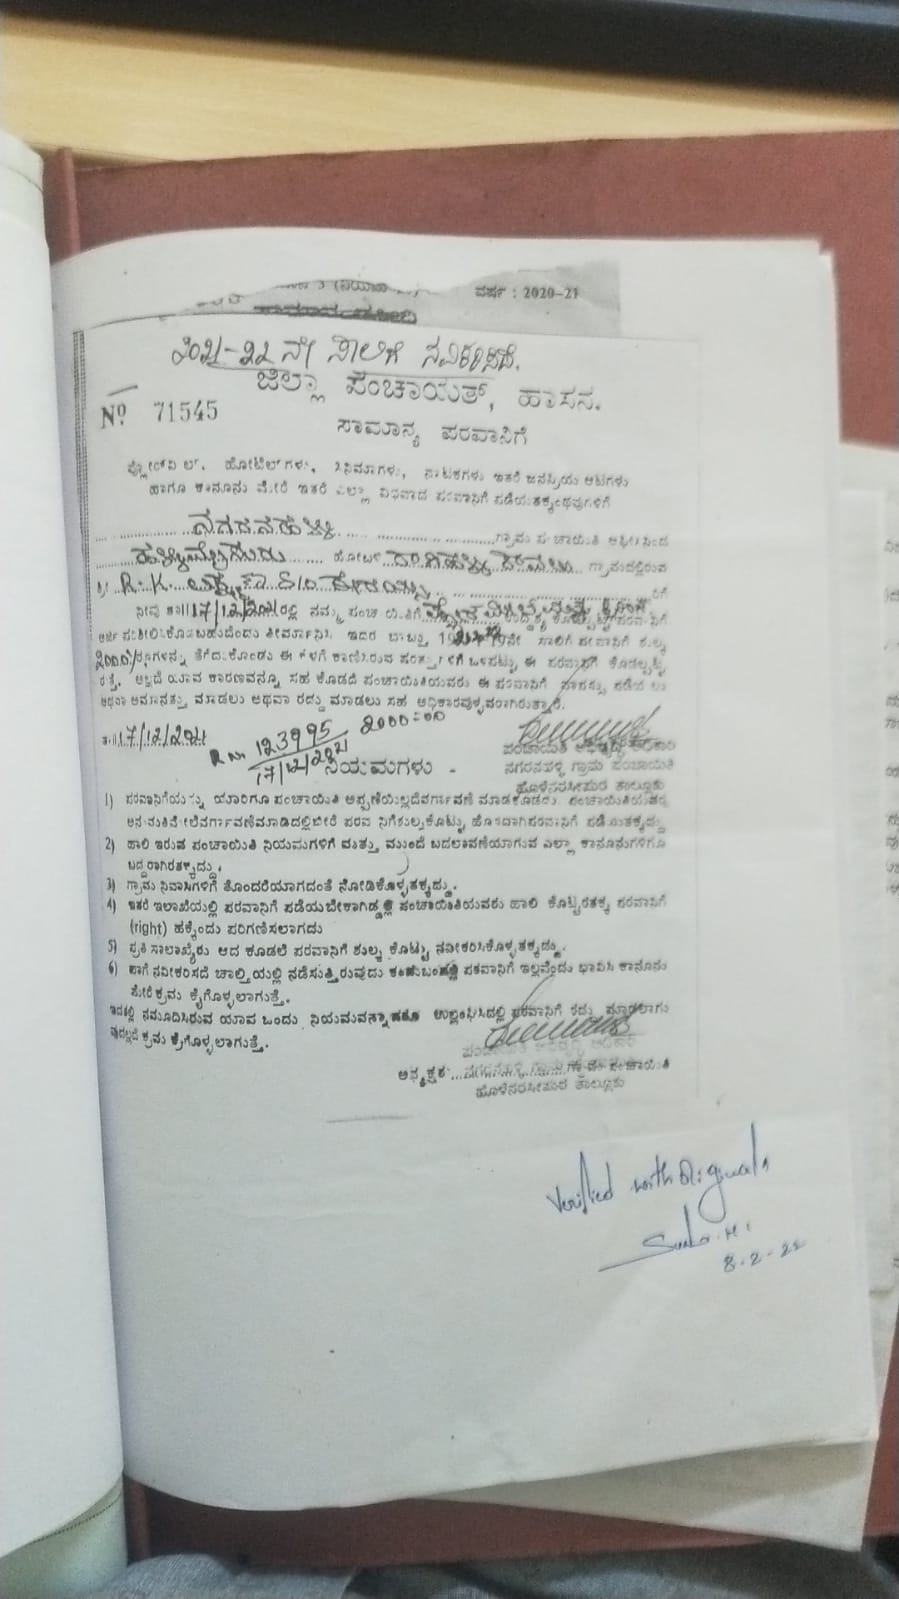 ವರ್ಷ : 2020-21
2021-22 ನೇ ಸಾಲಿಗೆ ನವೀಕರಿಸಿದೆ.
ಜಿಲ್ಲಾ ಪಂಚಾಯತ್, ಹಾಸನ.
Nº 71545
ಸಾಮಾನ್ಯ ಪರವಾನಿಗೆ
ಹೋಟೆಲ್‌ಗಳು, ಸಿನಿಮಾಗಳು, ನಾಟಕಗಳು ಇತರೆ ಜನಪ್ರಿಯ ಆಟಗಳು
ಹಾಗೂ ಕಾನೂನು ಮೇರೆ ಇತರೆ ಎಲ್ಲಾ ವಿಧವಾದ ಪರವಾನಿಗೆ ಪಡೆಯತಕ್ಕಂಥವುಗಳಿಗೆ
ನಗರನಹಳ್ಳಿ ಗ್ರಾಮ ಪಂಚಾಯಿತಿ ಆಫೀಸಿನಿಂದ
ಹಳ್ಳಿಮೈಸೂರು ಹೋಬಳಿ ಗ್ರಾಮದಲ್ಲಿರುವ
ಶ್ರೀ R.K. S/o ರಿಗೆ
ನೀವು ತಾ|| 17/12/2021 ರಲ್ಲಿ ನಮ್ಮ ಪಂಚಾಯಿತಿಗೆ
ಇದರ ಬಾಬ್ತು ಸಾಲಿಗೆ ಪರವಾನಿಗೆ ಶುಲ್ಕ
2000/ ತೆಗೆದುಕೊಂಡು ಈ ಕೆಳಗೆ ಕಾಣಿಸಿರುವ ಷರತ್ತುಗಳಿಗೆ ಒಳಪಟ್ಟು ಈ ಪರವಾನಿಗೆ ಕೊಡಲ್ಪಟ್ಟಿ
ರುತ್ತೆ. ಅಲ್ಲದೆ ಯಾವ ಕಾರಣವನ್ನೂ ಸಹ ಕೊಡದೆ ಪಂಚಾಯಿತಿಯವರು ಈ ಪರವಾನಿಗೆ ವಾಪಸ್ಸು ಪಡೆಯಲು
ಅಥವಾ ಅಮಾನತ್ತು ಮಾಡಲು ಅಥವಾ ರದ್ದು ಮಾಡಲು ಸಹ ಅಧಿಕಾರವುಳ್ಳವರಾಗಿರುತ್ತಾರೆ.
ತಾ|| 17/12/2021
R No 123995 2000=00
17/12/2021
ಪಂಚಾಯಿತಿ ಅಭಿವೃದ್ಧಿ ಅಧಿಕಾರಿ
ನಗರನಹಳ್ಳಿ ಗ್ರಾಮ ಪಂಚಾಯಿತಿ
ಹೊಳೆನರಸೀಪುರ ತಾಲ್ಲೂಕು
ನಿಯಮಗಳು
1) ಪರವಾನಿಗೆಯನ್ನು ಯಾರಿಗೂ ಪಂಚಾಯಿತಿ ಅಪ್ಪಣೆಯಿಲ್ಲದೆ ವರ್ಗಾವಣೆ ಮಾಡಕೂಡದು. ಪಂಚಾಯಿತಿಯವರ
ಅನುಮತಿ ಮೇಲೆ ವರ್ಗಾವಣೆ ಮಾಡಿದಲ್ಲಿ ಬೇರೆ ಪರವಾನಿಗೆ ಶುಲ್ಕ ಕೊಟ್ಟು, ಹೊಸದಾಗಿ ಪರವಾನಿಗೆ ಪಡೆಯತಕ್ಕದ್ದು
2) ಹಾಲಿ ಇರುವ ಪಂಚಾಯಿತಿ ನಿಯಮಗಳಿಗೆ ಮತ್ತು ಮುಂದೆ ಬದಲಾವಣೆಯಾಗುವ ಎಲ್ಲಾ ಕಾನೂನುಗಳಿಗೂ
ಬದ್ಧರಾಗಿರತಕ್ಕದ್ದು.
3) ಗ್ರಾಮ ನಿವಾಸಿಗಳಿಗೆ ತೊಂದರೆಯಾಗದಂತೆ ನೋಡಿಕೊಳ್ಳತಕ್ಕದ್ದು.
4) ಇತರೆ ಇಲಾಖೆಯಲ್ಲಿ ಪರವಾನಿಗೆ ಪಡೆಯಬೇಕಾಗಿದ್ದಲ್ಲಿ ಪಂಚಾಯಿತಿಯವರು ಹಾಲಿ ಕೊಟ್ಟಿರತಕ್ಕ ಪರವಾನಿಗೆ
(right) ಹಕ್ಕೆಂದು ಪರಿಗಣಿಸಲಾಗದು
5) ಪ್ರತಿ ಸಾಲಾಖೈರು ಆದ ಕೂಡಲೆ ಪರವಾನಿಗೆ ಶುಲ್ಕ ಕೊಟ್ಟು ನವೀಕರಿಸಿಕೊಳ್ಳತಕ್ಕದ್ದು.
6) ಹಾಗೆ ನವೀಕರಿಸದೆ ಚಾಲ್ತಿಯಲ್ಲಿ ನಡೆಸುತ್ತಿರುವುದು ಕಂಡುಬಂದಲ್ಲಿ ಪರವಾನಿಗೆ ಇಲ್ಲವೆಂದು ಭಾವಿಸಿ ಕಾನೂನು
ಮೇರೆ ಕ್ರಮ ಕೈಗೊಳ್ಳಲಾಗುತ್ತೆ.
ಇದರಲ್ಲಿ ನಮೂದಿಸಿರುವ ಯಾವ ಒಂದು ನಿಯಮವನ್ನಾಗಲೀ ಉಲ್ಲಂಘಿಸಿದಲ್ಲಿ ಪರವಾನಿಗೆ ರದ್ದು ಮಾಡಲಾಗು
ವುದಲ್ಲದೆ ಕ್ರಮ ಕೈಗೊಳ್ಳಲಾಗುತ್ತೆ.
ಪಂಚಾಯಿತಿ ಅಭಿವೃದ್ಧಿ ಅಧಿಕಾರಿ
ಅಧ್ಯಕ್ಷರು ಗ್ರಾಮ ಪಂಚಾಯಿತಿ
ಹೊಳೆನರಸೀಪುರ ತಾಲ್ಲೂಕು
Verified with Original
8-2-22